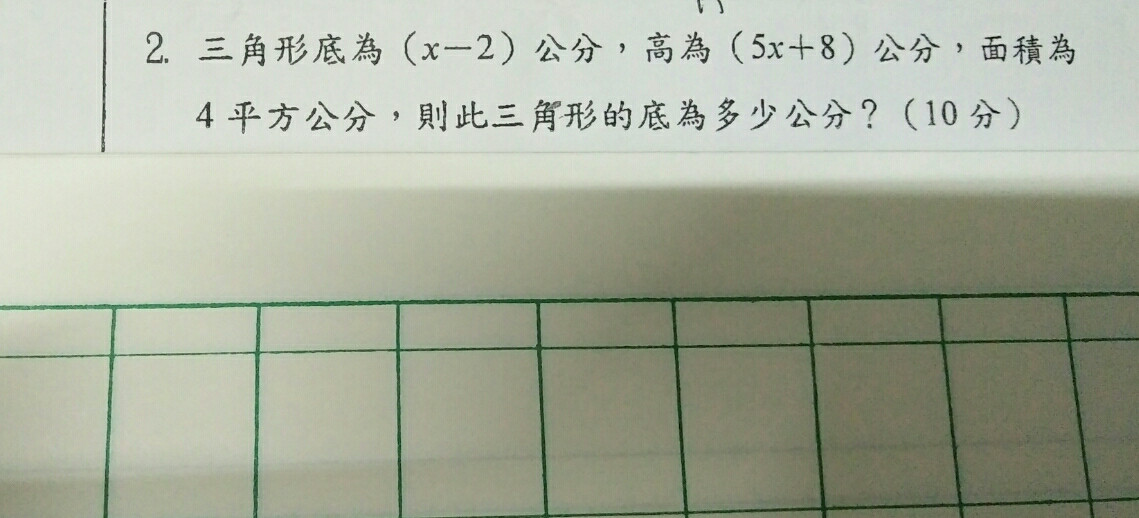 2. 三角形底為（x－2）公分，高為（5x＋8）公分，面積為
4 平方公分，則此三角形的底為多少公分？（10 分）